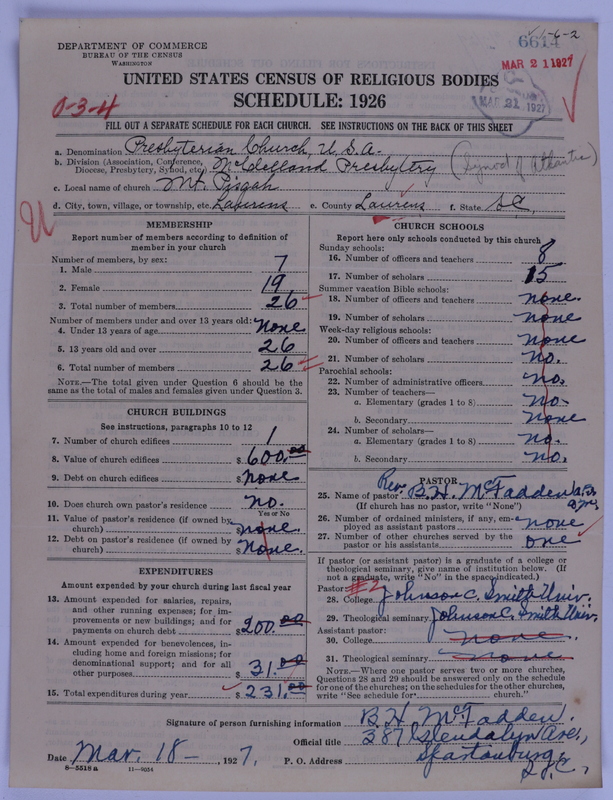 6614
1-6-2
DEPARTMENT OF COMMERCE
BUREAU OF THE CENSUS
WASHINGTON
MAR 21 1927
UNITED STATES CENSUS OF RELIGIOUS BODIES
SCHEDULE: 1926
0-3-4
MAR 21 1927
FILL OUT A SEPARATE SCHEDULE FOR EACH CHURCH. SEE INSTRUCTIONS ON THE BACK OF THIS SHEET
a. Denomination Presbyterian Church, U.S.A.
b. Division (Association, Conference, Diocese, Presbytery, Synod, etc.) McClelland Presbytery (Synod of Atlantic)
c. Local name of church Mt. Pisgah
d. City, town, village, or township, etc. Laurens e. County Laurens f. State SC
MEMBERSHIP
Report number of members according to definition of
member in your church
Number of members, by sex:
1. Male 7
2. Female 19
3. Total number of members 26
Number of members under and over 13 years old:
4. Under 13 years of age none
5. 13 years old and over 26
6. Total number of members 26
NOTE.—The total given under Question 6 should be the
same as the total of males and females given under Question 3.
CHURCH BUILDINGS
See instructions, paragraphs 10 to 12
7. Number of church edifices 1
8. Value of church edifices $ 600.00
9. Debt on church edifices $ none
10. Does church own pastor's residence? no.
Yes or No
11. Value of pastor's residence (if owned by
church) $ none.
12. Debt on pastor's residence (if owned by
church) $ none.
EXPENDITURES
Amount expended by your church during last fiscal year
13. Amount expended for salaries, repairs,
and other running expenses; for im-
provements or new buildings; and for
payments on church debt $ 200.00
14. Amount expended for benevolences, in-
cluding home and foreign missions; for
denominational support; and for all
other purposes $ 31.00
15. Total expenditures during year $ 231.00
CHURCH SCHOOLS
Report here only schools conducted by this church
Sunday schools:
16. Number of officers and teachers 8
17. Number of scholars 15
Summer vacation Bible schools:
18. Number of officers and teachers none.
19. Number of scholars none
Week-day religious schools:
20. Number of officers and teachers none
21. Number of scholars no.
Parochial schools:
22. Number of administrative officers no.
23. Number of teachers—
a. Elementary (grades 1 to 8) no.
b. Secondary none
24. Number of scholars—
a. Elementary (grades 1 to 8) no.
b. Secondary no.
PASTOR
25. Name of pastor Rev. B. H. McFadden
(If church has no pastor, write "None")
26. Number of ordained ministers, if any, em-
ployed as assistant pastors none
27. Number of other churches served by the
pastor or his assistants one
If pastor (or assistant pastor) is a graduate of a college or
theological seminary, give name of institution below. (If
not a graduate, write "No" in the space indicated.)
Pastor: #2
28. College Johnson C. Smith Univ.
29. Theological seminary Johnson C. Smith Univ.
Assistant pastor:
30. College none.
31. Theological seminary none
NOTE.—Where one pastor serves two or more churches,
Questions 28 and 29 should be answered only on the schedule
for one of the churches; on the schedules for the other churches,
write "See schedule for church."
Signature of person furnishing information B. H. McFadden.
Official title 387 Glendalyn Ave.,
Date Mar. 18 —, 1927. P. O. Address Spartanburg
S.C.
8—5518 a 11—9054